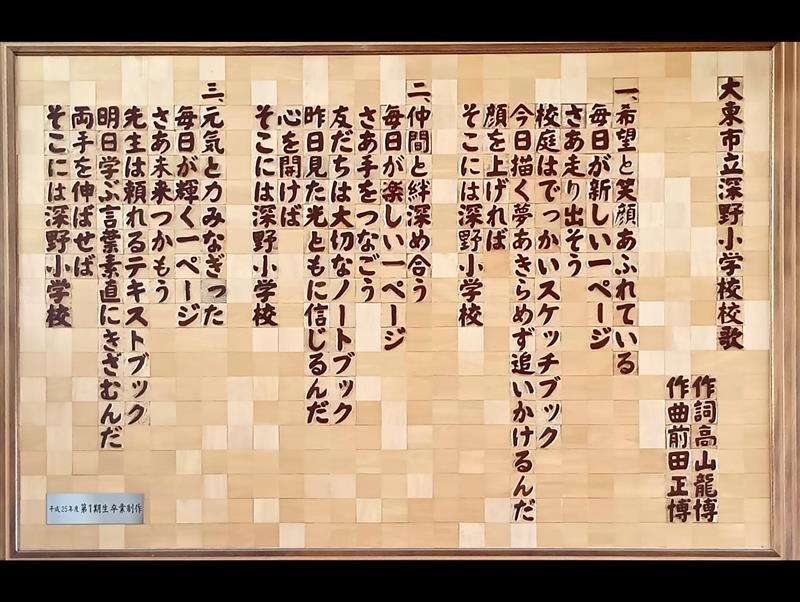 大東市立深野小学校校歌
作詞高山龍博
作曲前田正博
一、希望と笑顔あふれている
毎日が新しい一ページ
さあ走り出そう
校庭はでっかいスケッチブック
今日描く夢あきらめず追いかけるんだ
顔を上げれば
そこには深野小学校
二、仲間と絆深め合う
毎日が楽しい一ページ
さあ手をつなごう
友だちは大切なノートブック
昨日見た光ともに信じるんだ
心を開けば
そこには深野小学校
三、元気と力みなぎった
毎日が輝く一ページ
さあ未来つかもう
先生は頼れるテキストブック
明日学ぶ言葉素直にきざむんだ
両手を伸ばせば
そこには深野小学校
平成25年度 第1期生 卒業制作